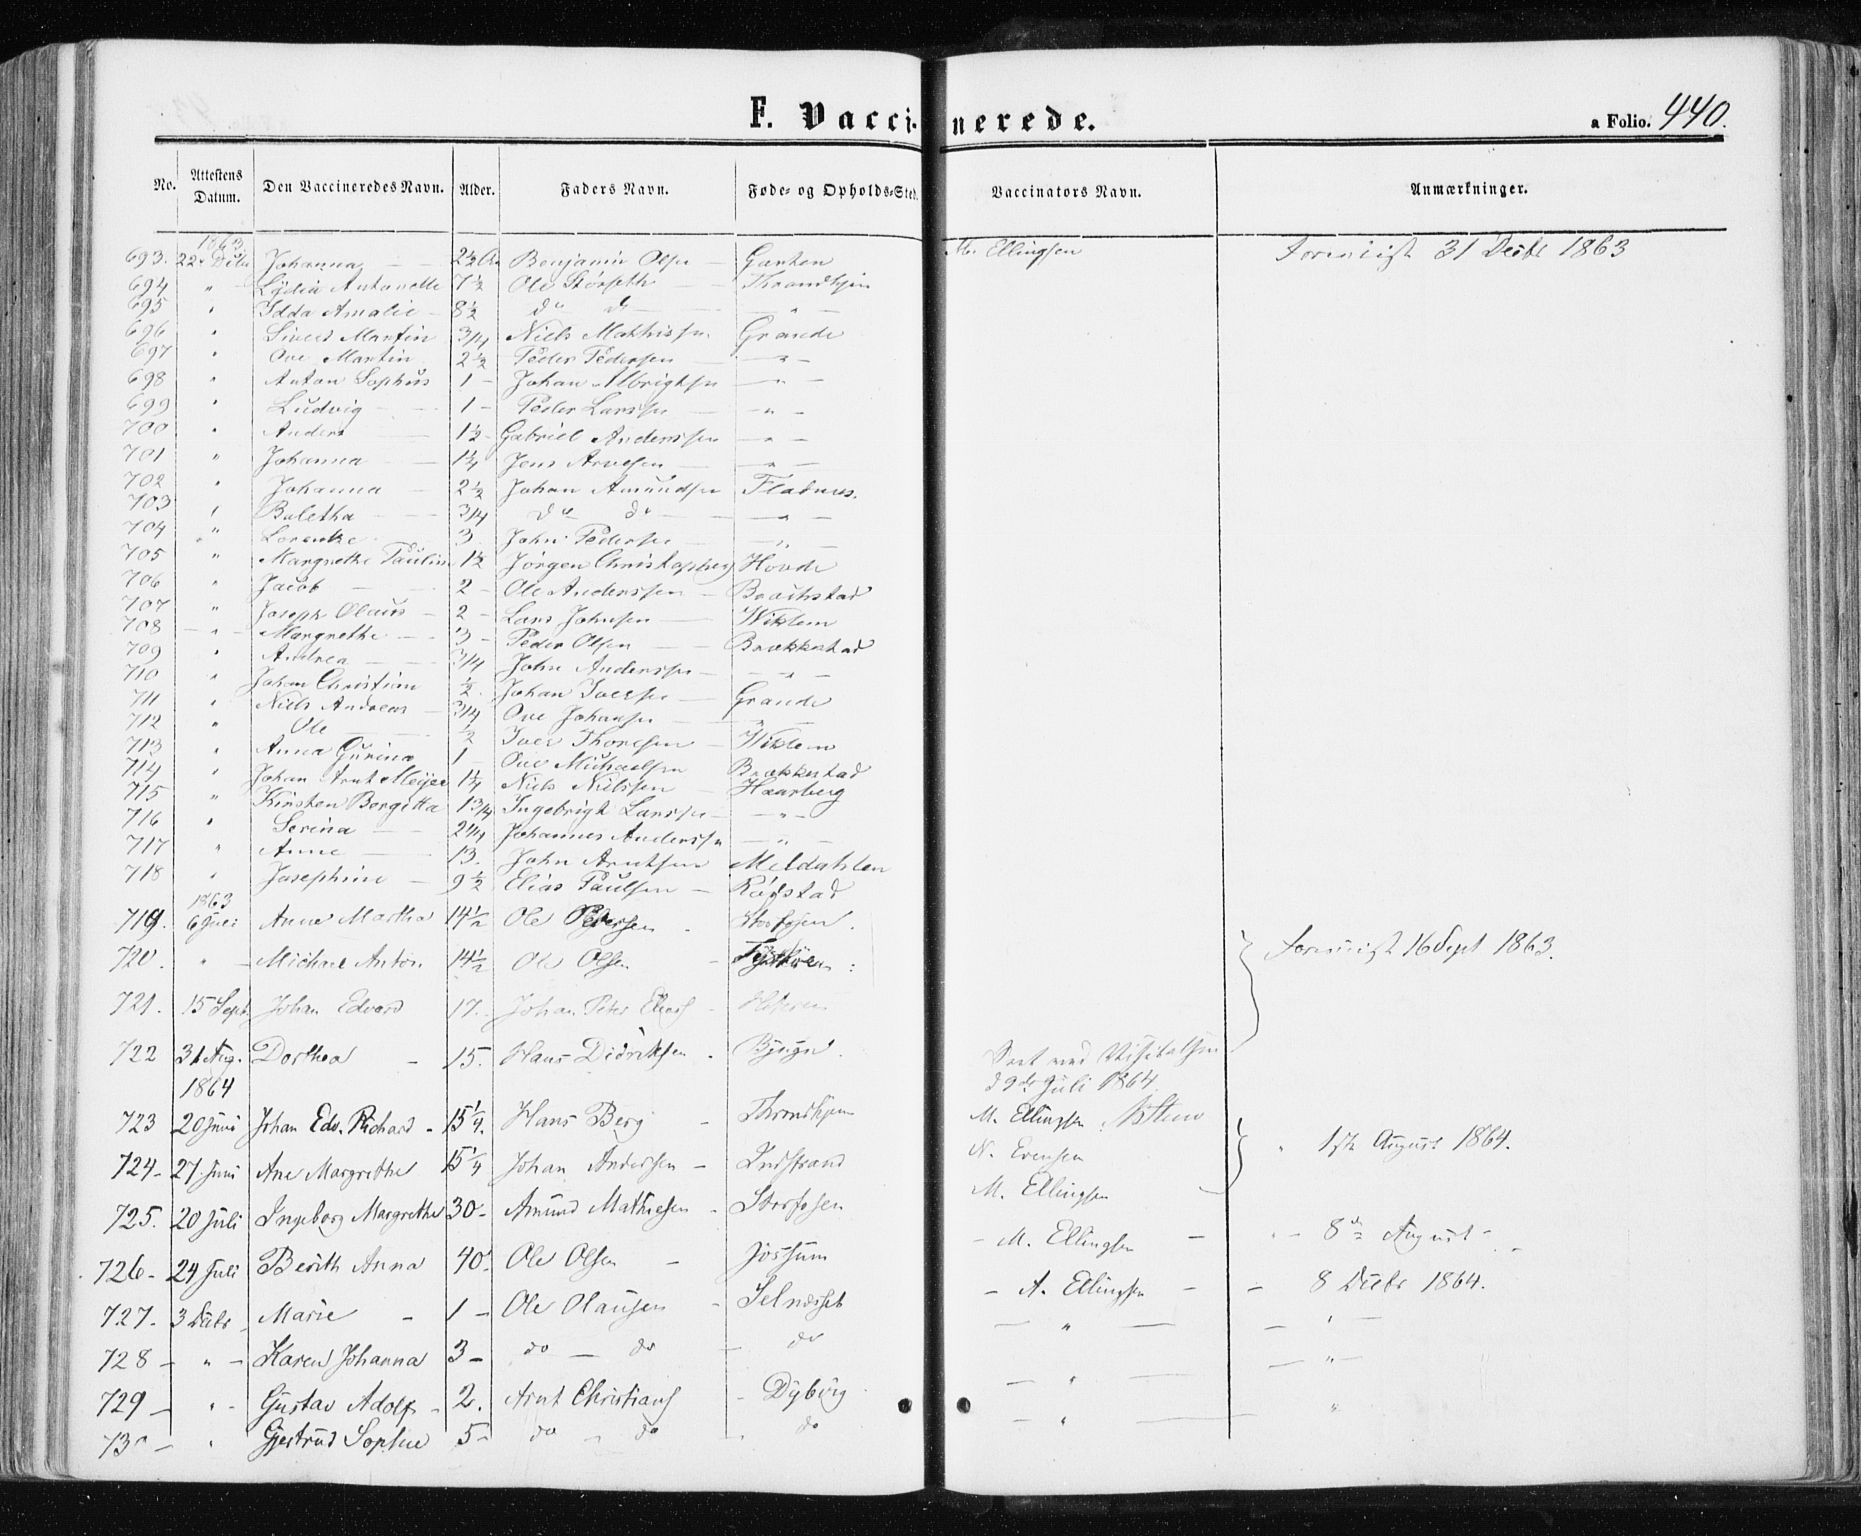 F. Vaccinerede.
a Folio. 440.
No. Attestens Datum. Den Vaccineredes Navn. Alder. Faders Navn. Føde- og Opholds-Sted. Vaccinators Navn. Anmærkninger.
1863
693. 22 Debr Johanna 2½ Benjamin Olsen M. Ellingsen 31 Decbr 1863
694 " Lydia Antonette 7½ Ole Størseth Throndhjem
695 " Idda Amalie 8½ do do - " -
696 " Sivert Martin 3/4 Niels Mathissen Grande
697 " Ove Martin 2½ Peder Pedersen - " -
698 " Anton Sophus 1 - Johan Albrigtsen - " -
699 " Ludvig 1 - Peder Larssen - " -
700 " Anders 1½ - Gabriel Anderssen - " -
701 " Johanna 1¼ Jens Arnesen - " -
702 " Johanna 2½ Johan Amundsen Fladnes.
703 " Baletha 3/4 do do - " -
704 " Lorentze 3 John Pedersen - " -
705 " Margrethe Paulin 1½ Jørgen Christophers Hovde
706 " Jacob 2 - Ole Anderssen
707 " Joseph Olaus - 2 - Lars Johnsen Wiklem
708 - " - Margrethe 3 - Peder Olsen Brækkestad
709 " Andrea 3/4 John Anderssen - " -
710 " Johan Christian ½ Johan Iversen Grande
711 " Niels Andreas 3/4 Ove Johansen - " -
712 " Ole ½ Iver Thoresen Wiklem
713 " Anna Gurina 1 - Ove Michaelsen Brækkestad
714 " Johan Arnt Meijer 1¼ Niels Nielssen Haarberg
715 " Kirsten Bergitta 1 3/4 Ingebrigt Larssen - " -
716 " Serina 2 1/4 Johannes Anderssen - " -
717 " Anne 13. John Arntsen Meldahlen
718 " Josephine 9½ Elias Paulsen
1863
719. 6 Juli Anne Martha 14½ Ole Pedersen Storfosen.
720. " - Michael Anton 14½ Ole Olsen 16 Sept 1863.
721. 15 Sept. Johan Edvard 17. Johan Peter
722 31 Aug. Dorthea - 15. Hans Didriksen. Bjugn.
Seet ved Visitatsen
d 9de Juli 1864
1864
723 20 Juni Johan Edv. Richard - 15¼. Hans Berg - Throndhjem M. Ellingsen
724 - 27. Juni Ane Margrethe 15¼ Johan Andersen - Indstrand N. Evensen 1ste August 1864.
725. 20 Juli Ingeborg Margrethe 30 - Amund Mathiesen - Storfosen M. Ellingsen
726 - 24 Juli Berith Anna 40. Ole Olsen - Jøssum - M. Ellingsen - " - 8de August -
727 - 3 Debr - Marie - 1 - Ole Olausen - Selnesset - A. Ellingsen - - 8 Decbr 1864.
728 - " - Karen Johanna 3 - do - do - do - " - - " -
729 - " - Gustav Adolf - 2. Arnt Christians - Dybvig - " - - " -
730 - " Gjertrud Sophie 5 - do - do - do - " - "